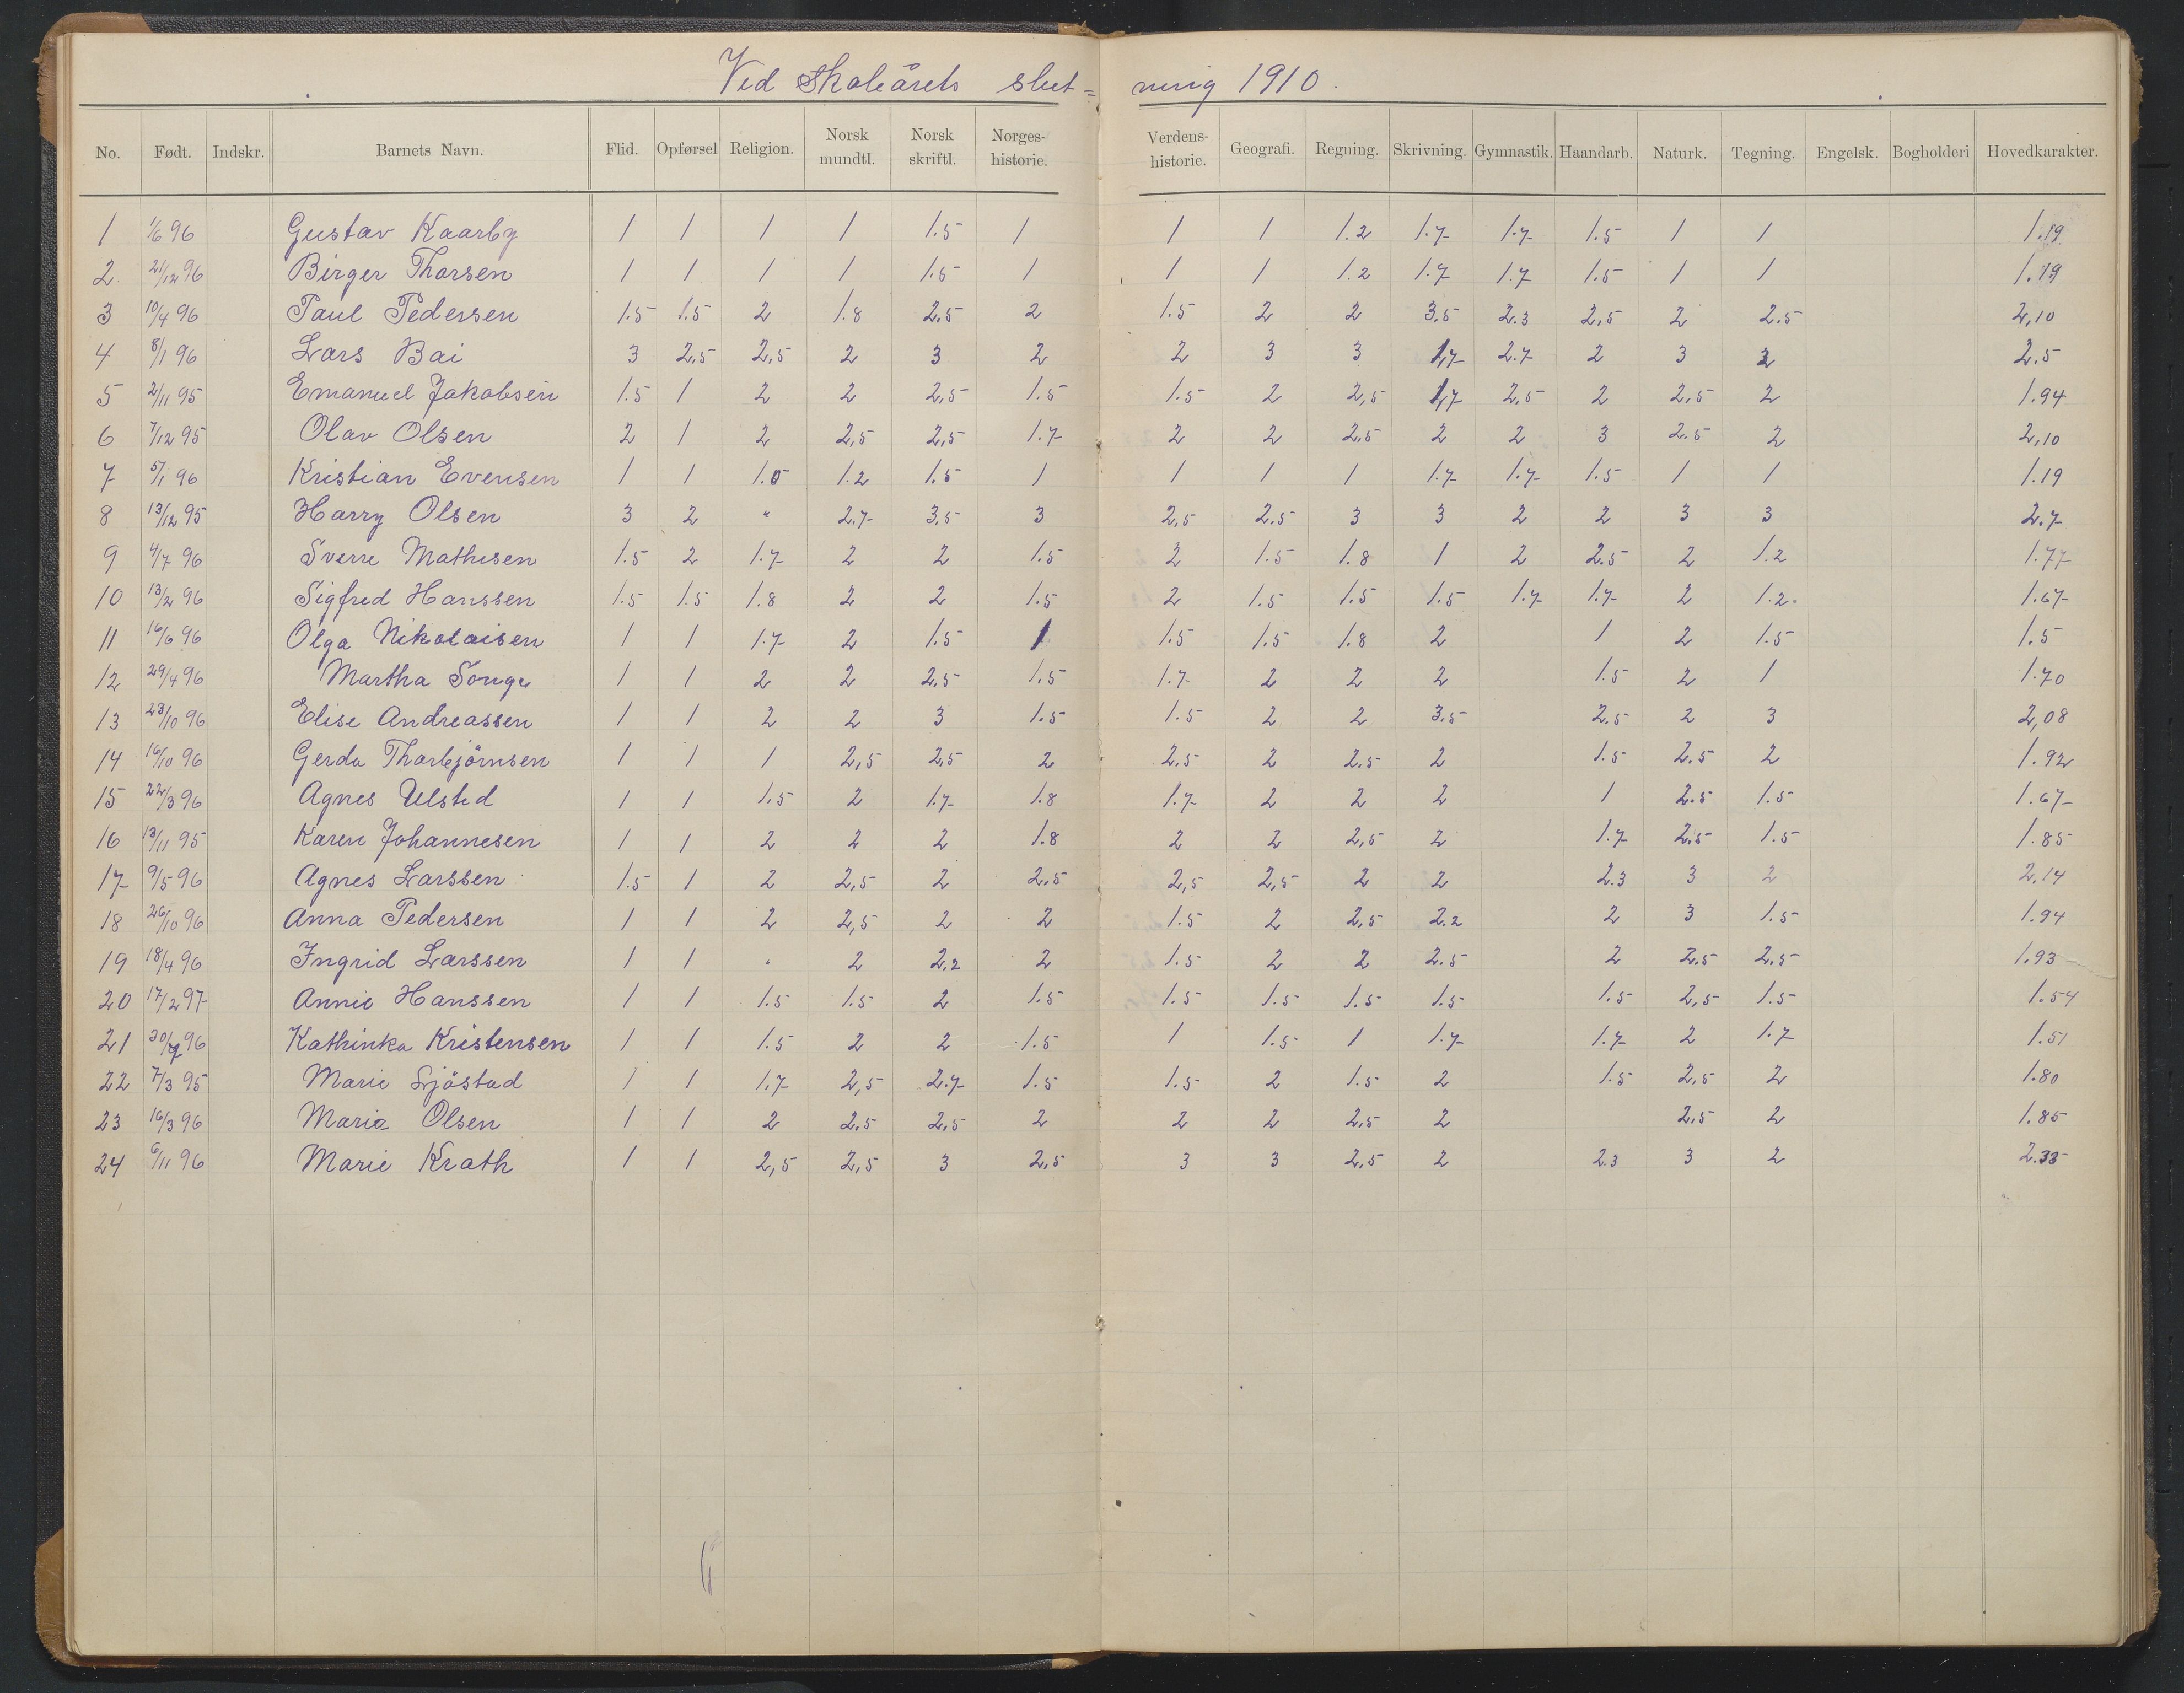 Ved skoleårets slut=ning 1910.
No. Født. Indskr. Barnets Navn. Flid. Opførsel Religion. Norsk mundtl. Norsk skriftl. Norges-historie. Verdens-historie. Geografi. Regning. Skrivning. Gymnastik. Haandarb. Naturk. Tegning. Engelsk. Bogholderi Hovedkarakter.
1 1/6 96 Gustav Kaarby 1 1 1 1 1.5 1 1 1 1.2 1.7 1.7 1.5 1 1 1.19
2. 21/12 96 Birger Thorsen 1 1 1 1 1.5 1 1 1 1.2 1.7 1.7 1.5 1 1 1.19
3 10/4 96 Paul Pedersen 1.5 1.5 2 1.8 2,5 2 1.5 2 2 3.5 2.3 2,5 2 2.5 2,10
4 8/1 96 Lars Bai 3 2,5 2,5 2 3 2 2 3 3 1,7 2.7 2 3 3 2.5
5 2/11 95 Emanuel Jakobsen 1.5 1 2 2 2,5 1.5 1.5 2 2,5 1,7 2,5 2 2,5 2 1.94
6 7/12 95 Olav Olsen 2 1 2 2,5 2,5 1.7 2 2 2,5 2 2 3 2.5 2 2,10
7 5/1 96 Kristian Evensen 1 1 1.5 1.2 1.5 1 1 1 1 1.7 1.7 1.5 1 1 1.19
8 13/12 95 Harry Olsen 3 2 " 2.7 3,5 3 2,5 2.5 3 3 2 2 3 3 2.7
9 4/7 96 Sverre Mathisen 1.5 2 1.7 2 2 1.5 2 1.5 1.8 1 2 2.5 2 1.2 1.77
10 13/2 96 Sigfred Hanssen 1.5 1.5 1.8 2 2 1.5 2 1.5 1.5 1.5 1.7 1.7 2 1.2. 1.67
11 16/6 96 Olga Nikolaisen 1 1 1.7 2 1.5 1 1.5 1.5 1.8 2 1 2 1.5 1.5
12 29/4 96 Martha Songe 1 1 2 2 2,5 1.5 1.7 2 2 2 1.5 2 1 1.70
13 23/10 96 Elise Andreassen 1 1 2 2 3 1.5 1.5 2 2 3.5 2.5 2 3 2,08
14 16/10 96 Gerda Thorbjörnsen 1 1 1 2,5 2,5 2 2,5 2 2.5 2 1.5 2.5 2 1.92
15 22/3 96 Agnes Ulsted 1 1 1.5 2 1.7 1.8 1.7 2 2 2 1 2.5 1.5 1.67
16 13/11 95 Karen Johannesen 1 1 2 2 2 1.8 2 2 2,5 2 1.7 2,5 1.5 1.85
17 9/5 96 Agnes Larssen 1.5 1 2 2,5 2 2,5 2,5 2,5 2 2 2.3 3 2 2,14
18 26/10 96 Anna Pedersen 1 1 2 2,5 2 2 1.5 2 2,5 2.2 2 3 1.5 1.94
19 18/4 96 Ingrid Larssen 1 1 " 2 2,2 2 1.5 2 2 2.5 2 2,5 2,5 1.93
20 17/2 97 Annie Hanssen 1 1 1.5 1.5 2 1.5 1.5 1.5 1.5 1.5 1.5 2,5 1.5 1.54
21 30/9 96 Kathinka Kristensen 1 1 1.5 2 2 1.5 1 1.5 1 1.7 1.7 2 1.7 1.51
22 7/3 95 Marie Sjöstad 1 1 1,7 2,5 2.7 1.5 1.5 2 1.5 2 1.5 2,5 2 1.80
23 16/3 96 Maria Olsen 1 1 2 2.5 2,5 2 2 2 2,5 2 2,5 2 1.85
24 6/11 96 Marie Krath 1 1 2,5 2,5 3 2,5 3 3 2,5 2 2.3 3 2 2.33